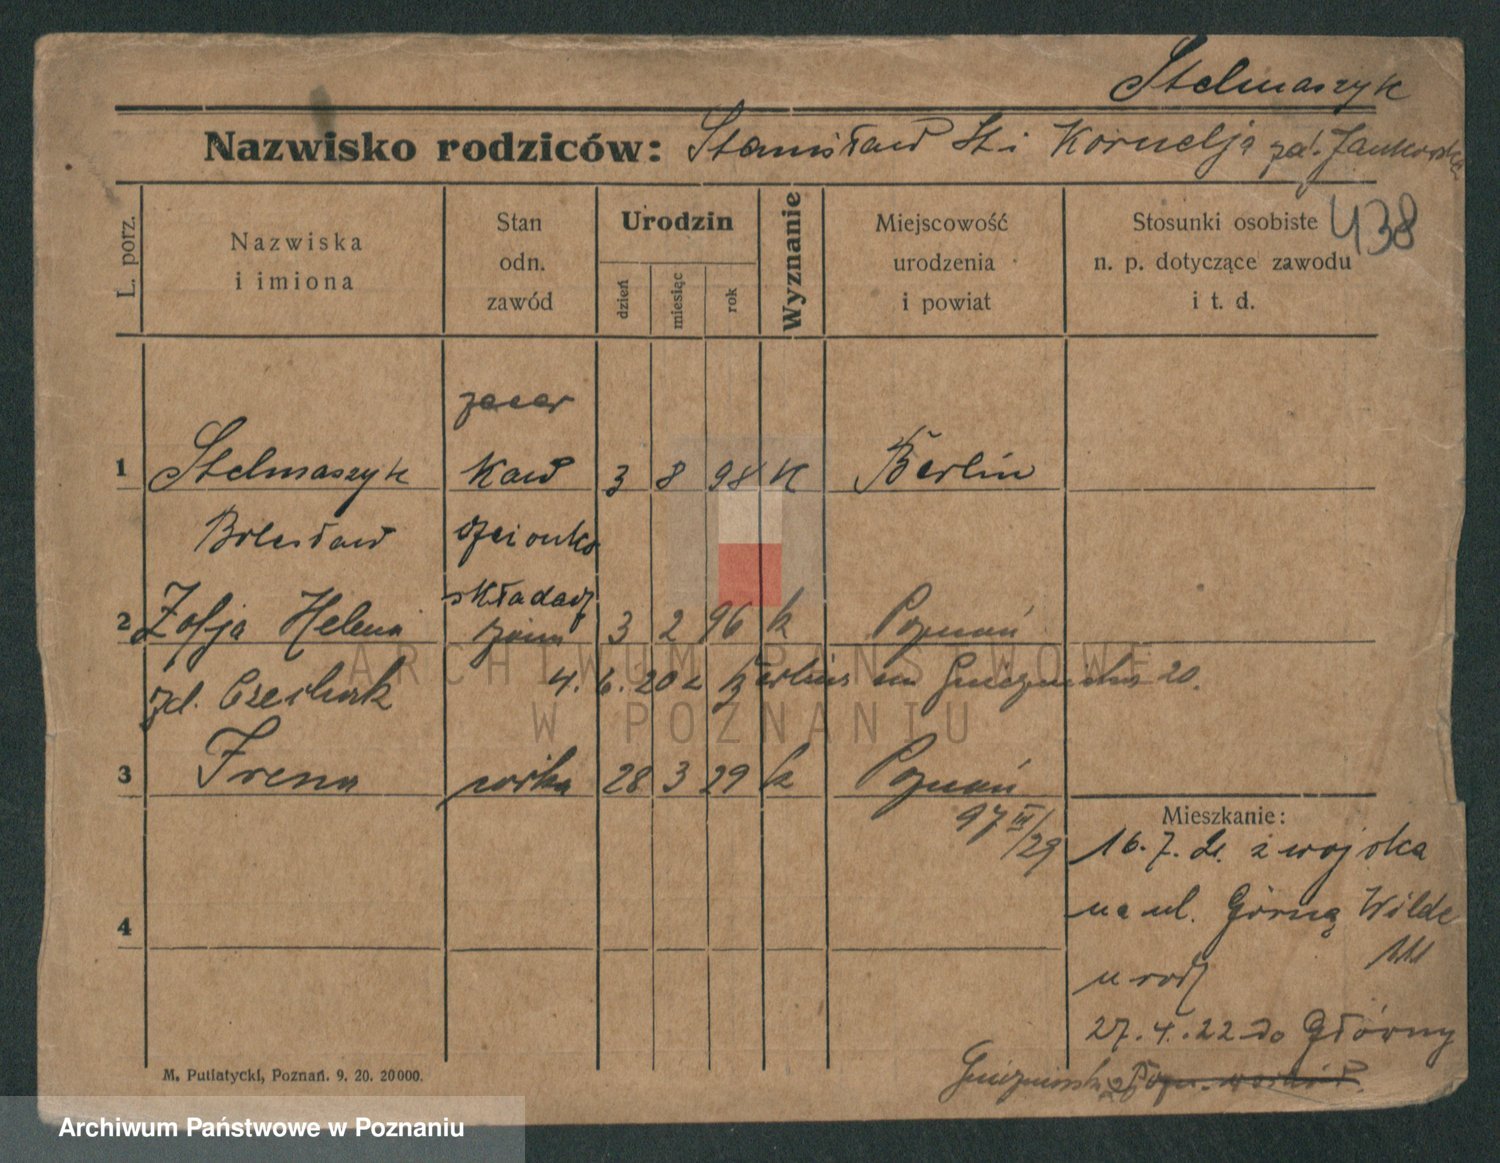 Stelmaszyk
Nazwisko rodziców: Stanisław St. i Kornelja zd. Jankowska
438
L. porz.
Nazwiska
i imiona
Stan
odn.
zawód
Urodzin
dzień
miesiąc
rok
Wyznanie
Miejscowość
urodzenia
i powiat
Stosunki osobiste
n. p. dotyczące zawodu
i t. d.
zecer
1 Stelmaszyk kaw 3 8 98 K Berlin
Bolesław
składacz
2 Zofja Helena żona 3 2 96 k Poznań
zd. 4. 6. 20 z Berlina 20.
3 Irena córka 28 3 29 k Poznań
97 III/29
4
Mieszkanie:
16. 7. 21. z wojska
na ul. Górną Wildę
111
u rodz
27. 4. 22 do Główny
M. Putiatycki, Poznań. 9. 20. 20000.
ARCHIWUM PAŃSTWOWE
W POZNANIU
Archiwum Państwowe w Poznaniu